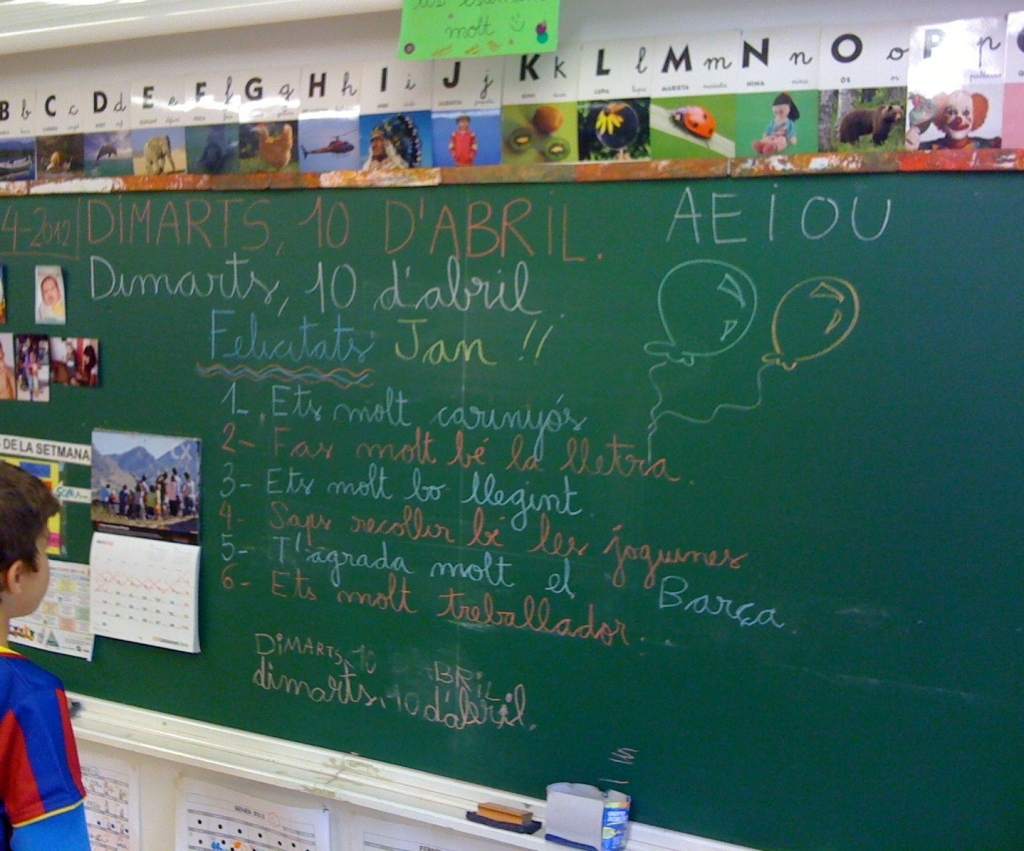 molt
B b C c D d E e F f G g H h I i J j K k L l M m N n O o P p
4-2012
DIMARTS, 10 D'ABRIL.
AEIOU
Dimarts, 10 d'abril
Felicitats Jan !!
1- Ets molt carinyós
2- Fas molt bé la lletra.
3- Ets molt bo llegint
4- Saps recollir bé les joguines
5- T'agrada molt el Barça
6- Ets molt treballador...
DIMARTS, 10 BRIL
dimarts, 10 d'abril.
DE LA SETMANA